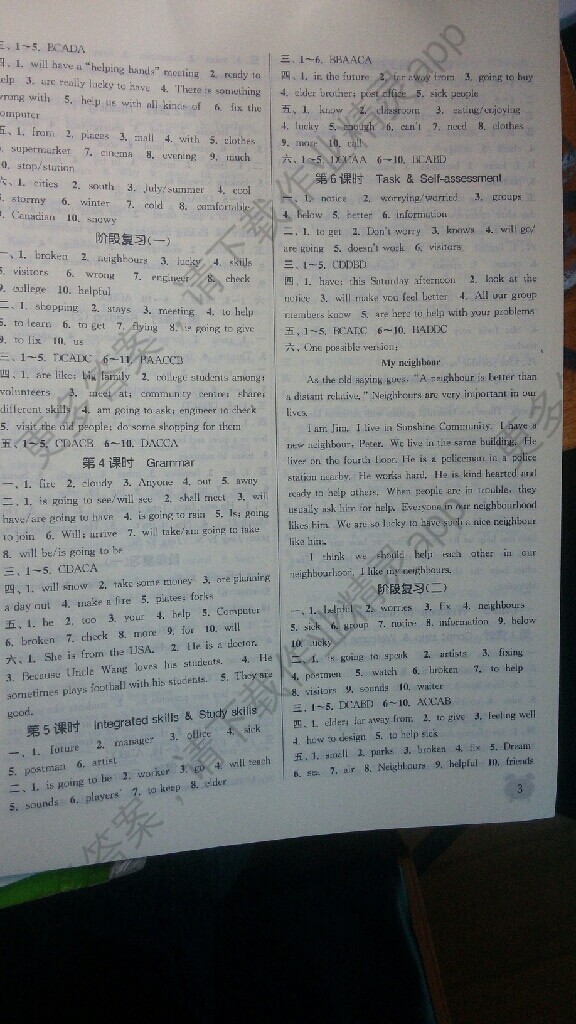 三、1~5. BCADA
四、1. will have a "helping hands" meeting 2. ready to
help 3. are really lucky to have 4. There is something
wrong with 5. help us with all kinds of 6. fix the
computer
五、1. from 2. places 3. mall 4. with 5. clothes
6. supermarket 7. cinema 8. evening 9. much
10. stop/station
六、1. cities 2. south 3. July/summer 4. cool
5. stormy 6. winter 7. cold 8. comfortable
9. Canadian 10. snowy
阶段复习(一)
一、1. broken 2. neighbours 3. lucky 4. skills
5. visitors 6. wrong 7. engineer 8. check
9. college 10. helpful
二、1. shopping 2. stays 3. meeting 4. to help
5. to learn 6. to get 7. flying 8. is going to give
9. to fix 10. us
三、1~5. DCADC 6~11. BAACCB
四、1. are like; big family 2. college students among;
volunteers 3. meet at; community centre; share;
different skills 4. am going to ask; engineer to check
5. visit the old people; do some shopping for them
五、1~5. CDACB 6~10. DACCA
第4课时 Grammar
一、1. fire 2. cloudy 3. Anyone 4. out 5. away
二、1. is going to see/will see 2. shall meet 3. will
have/are going to have 4. is going to rain 5. Is; going
to join 6. Will; arrive 7. will take/am going to take
8. will be/is going to be
三、1~5. CDACA
四、1. will snow 2. take some money 3. are planning
a day out 4. make a fire 5. plates; forks
五、1. be 2. too 3. your 4. help 5. Computer
6. broken 7. check 8. more 9. for 10. will
六、1. She is from the USA. 2. He is a doctor.
3. Because Uncle Wang loves his students. 4. He
sometimes plays football with his students. 5. They are
good.
第5课时 Integrated skills & Study skills
一、1. future 2. manager 3. office 4. sick
5. postman 6. artist
二、1. is going to be 2. worker 3. go 4. will teach
5. sounds 6. players' 7. to keep 8. elder
三、1~6. BBAACA
四、1. in the future 2. far away from 3. going to buy
4. elder brother; post office 5. sick people
五、1. know 2. classroom 3. eating/enjoying
4. lucky 5. enough 6. can't 7. need 8. clothes
9. more 10. call
六、1~5. DCCAA 6~10. BCABD
第6课时 Task & Self-assessment
一、1. notice 2. worrying/worried 3. groups
4. below 5. better 6. information
二、1. to get 2. Don't worry 3. knows 4. will go/
are going 5. doesn't work 6. visitors
三、1~5. CDDBD
四、1. have; this Saturday afternoon 2. look at the
notice 3. will make you feel better 4. All our group
members know 5. are here to help with your problems
五、1~5. BCADC 6~10. BADDC
六、One possible version:
My neighbour
As the old saying goes, "A neighbour is better than
a distant relative." Neighbours are very important in our
lives.
I am Jim. I live in Sunshine Community. I have a
new neighbour, Peter. We live in the same building. He
lives on the fourth floor. He is a policeman in a police
station nearby. He works hard. He is kind hearted and
ready to help others. When people are in trouble, they
usually ask him for help. Everyone in our neighbourhood
likes him. We are so lucky to have such a nice neighbour
like him.
I think we should help each other in our
neighbourhood. I like my neighbours.
阶段复习(二)
一、1. helpful 2. worries 3. fix 4. neighbours
5. sick 6. group 7. notice 8. information 9. below
10. lucky
二、1. is going to speak 2. artists 3. fixing
4. postmen 5. watch 6. broken 7. to help
8. visitors 9. sounds 10. waiter
三、1~5. DCABD 6~10. ACCAB
四、1. elder; far away from 2. to give 3. feeling well
4. how to design 5. to help sick
五、1. small 2. parks 3. broken 4. fix 5. Dream
6. sea 7. air 8. Neighbours 9. helpful 10. friends
3